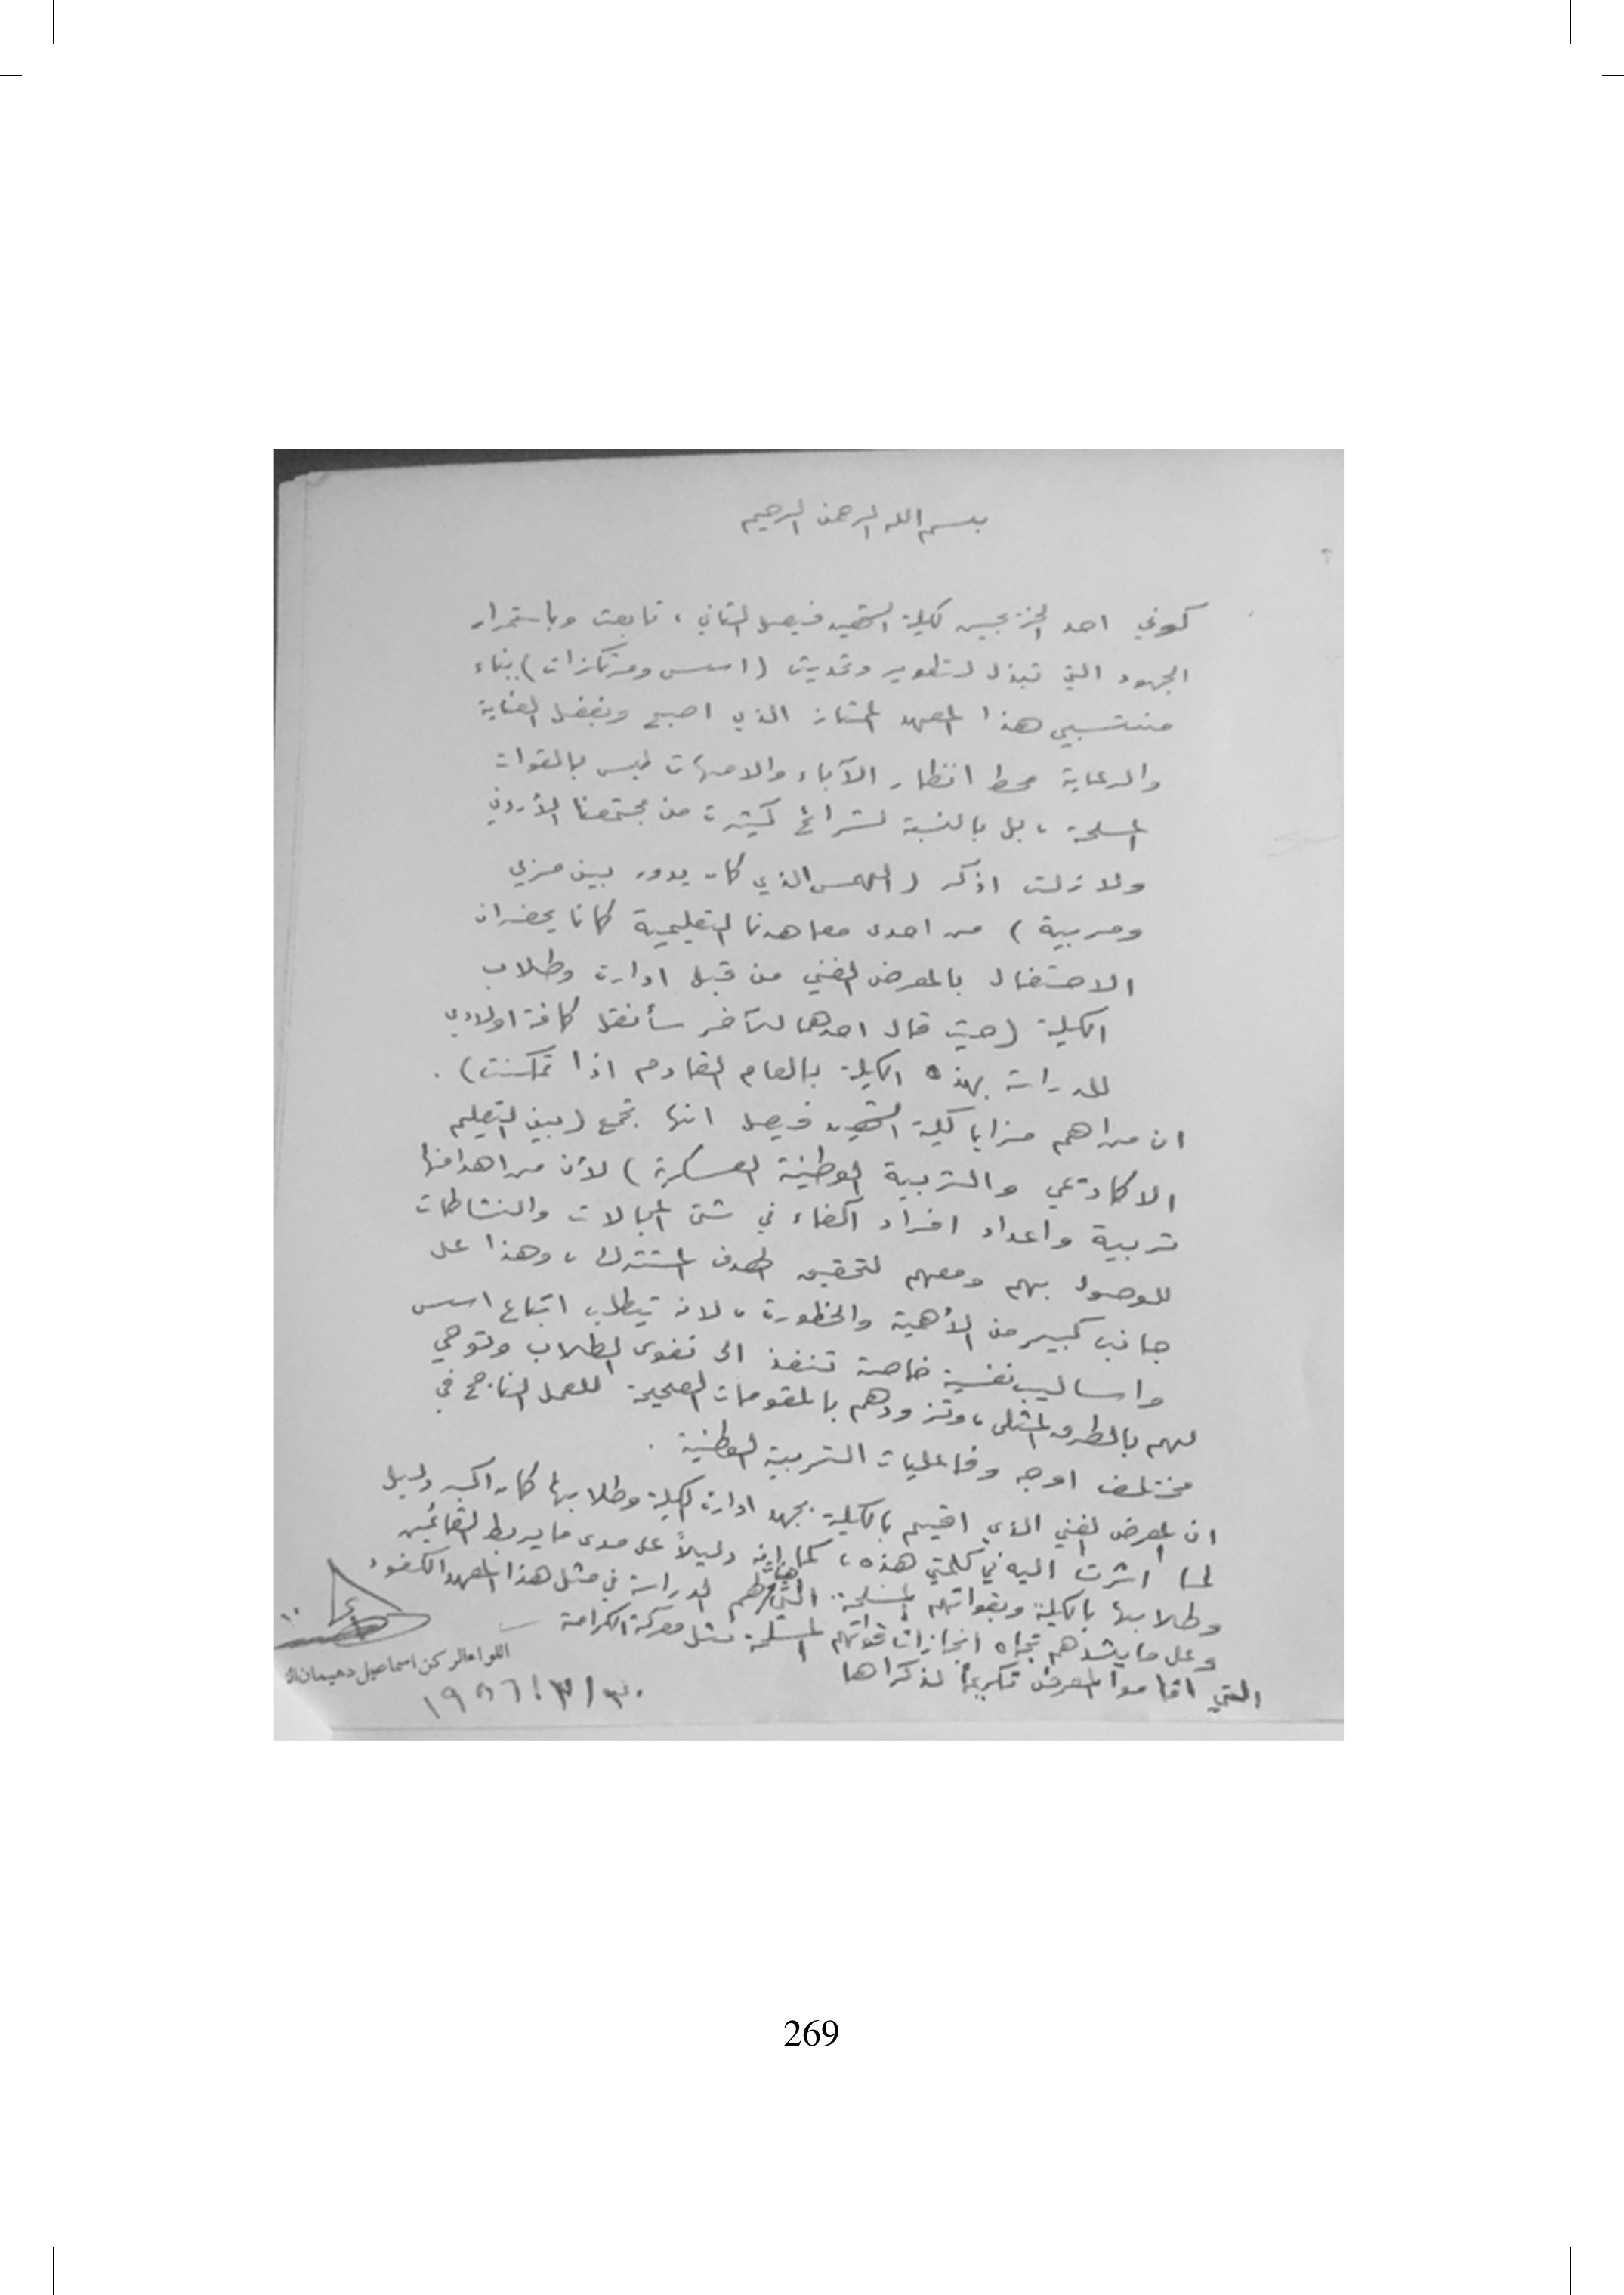 بسم الله الرحمن الرحيم
كوني احد الخريجيين لكلية الشهيد فيصل الثاني ، تابعت وباستمرار
الجهود التي تبذل لتطوير وتحديث (اسس ومرتكزات) بناء
منتسبي هذا المعهد الممتاز الذي اصبح وبفضل العناية
والرعاية محط انظار الآباء والامهات ليس بالقوات
المسلحة ، بل بالنسبة لشرائح كثيرة من مجتمعنا الأردني
ولا زلت اذكر (الهمس الذي كان يدور بين مربي
ومربية) من احدى معاهدنا التعليمية كانا يحضران
الاحتفال بالمعرض الفني من قبل ادارة وطلاب
الكلية (حيث قال احدهما للآخر سأنقل كافة اولادي
للدراسة بهذه الكلية بالعام القادم اذا تمكنت) .
ان من اهم مزايا كلية الشهيد فيصل انها تجمع (بين التعليم
الاكاديمي والتربية الوطنية العسكرية) لأن من اهدافها
تربية واعداد افراد اكفاء في شتى المجالات والنشاطات
للوصول بهم ومعهم لتحقيق الهدف المشترك ، وهذا على
جانب كبير من الأهمية والخطورة ، لانه يتطلب اتباع اسس
واساليب نفسية خاصة تنفذ الى نفوس الطلاب وتوحي
لهم بالطرق المثلى ، وتزودهم بالمقومات الصحيحة للعمل الناجح في
مختلف اوجه وفاعليات التربية الوطنية .
ان المعرض الفني الذي اقيم بالكلية بجهد ادارة الكلية وطلابها كان اكبر دليل
لما أشرت اليه في كلمتي هذه ، كما انه دليلاً على مدى ما يربط القائمين
وطلابها بالكلية وبقواتهم المسلحة التي هيأت لهم الدراسة في مثل هذا المعهد الكفوء
وعلى ما يشدهم تجاه انجازات قواتهم المسلحة مثل معركة الكرامة
التي اقاموا المعرض تكريماً لذكراها
اللواء الركن اسماعيل دهيمان
269